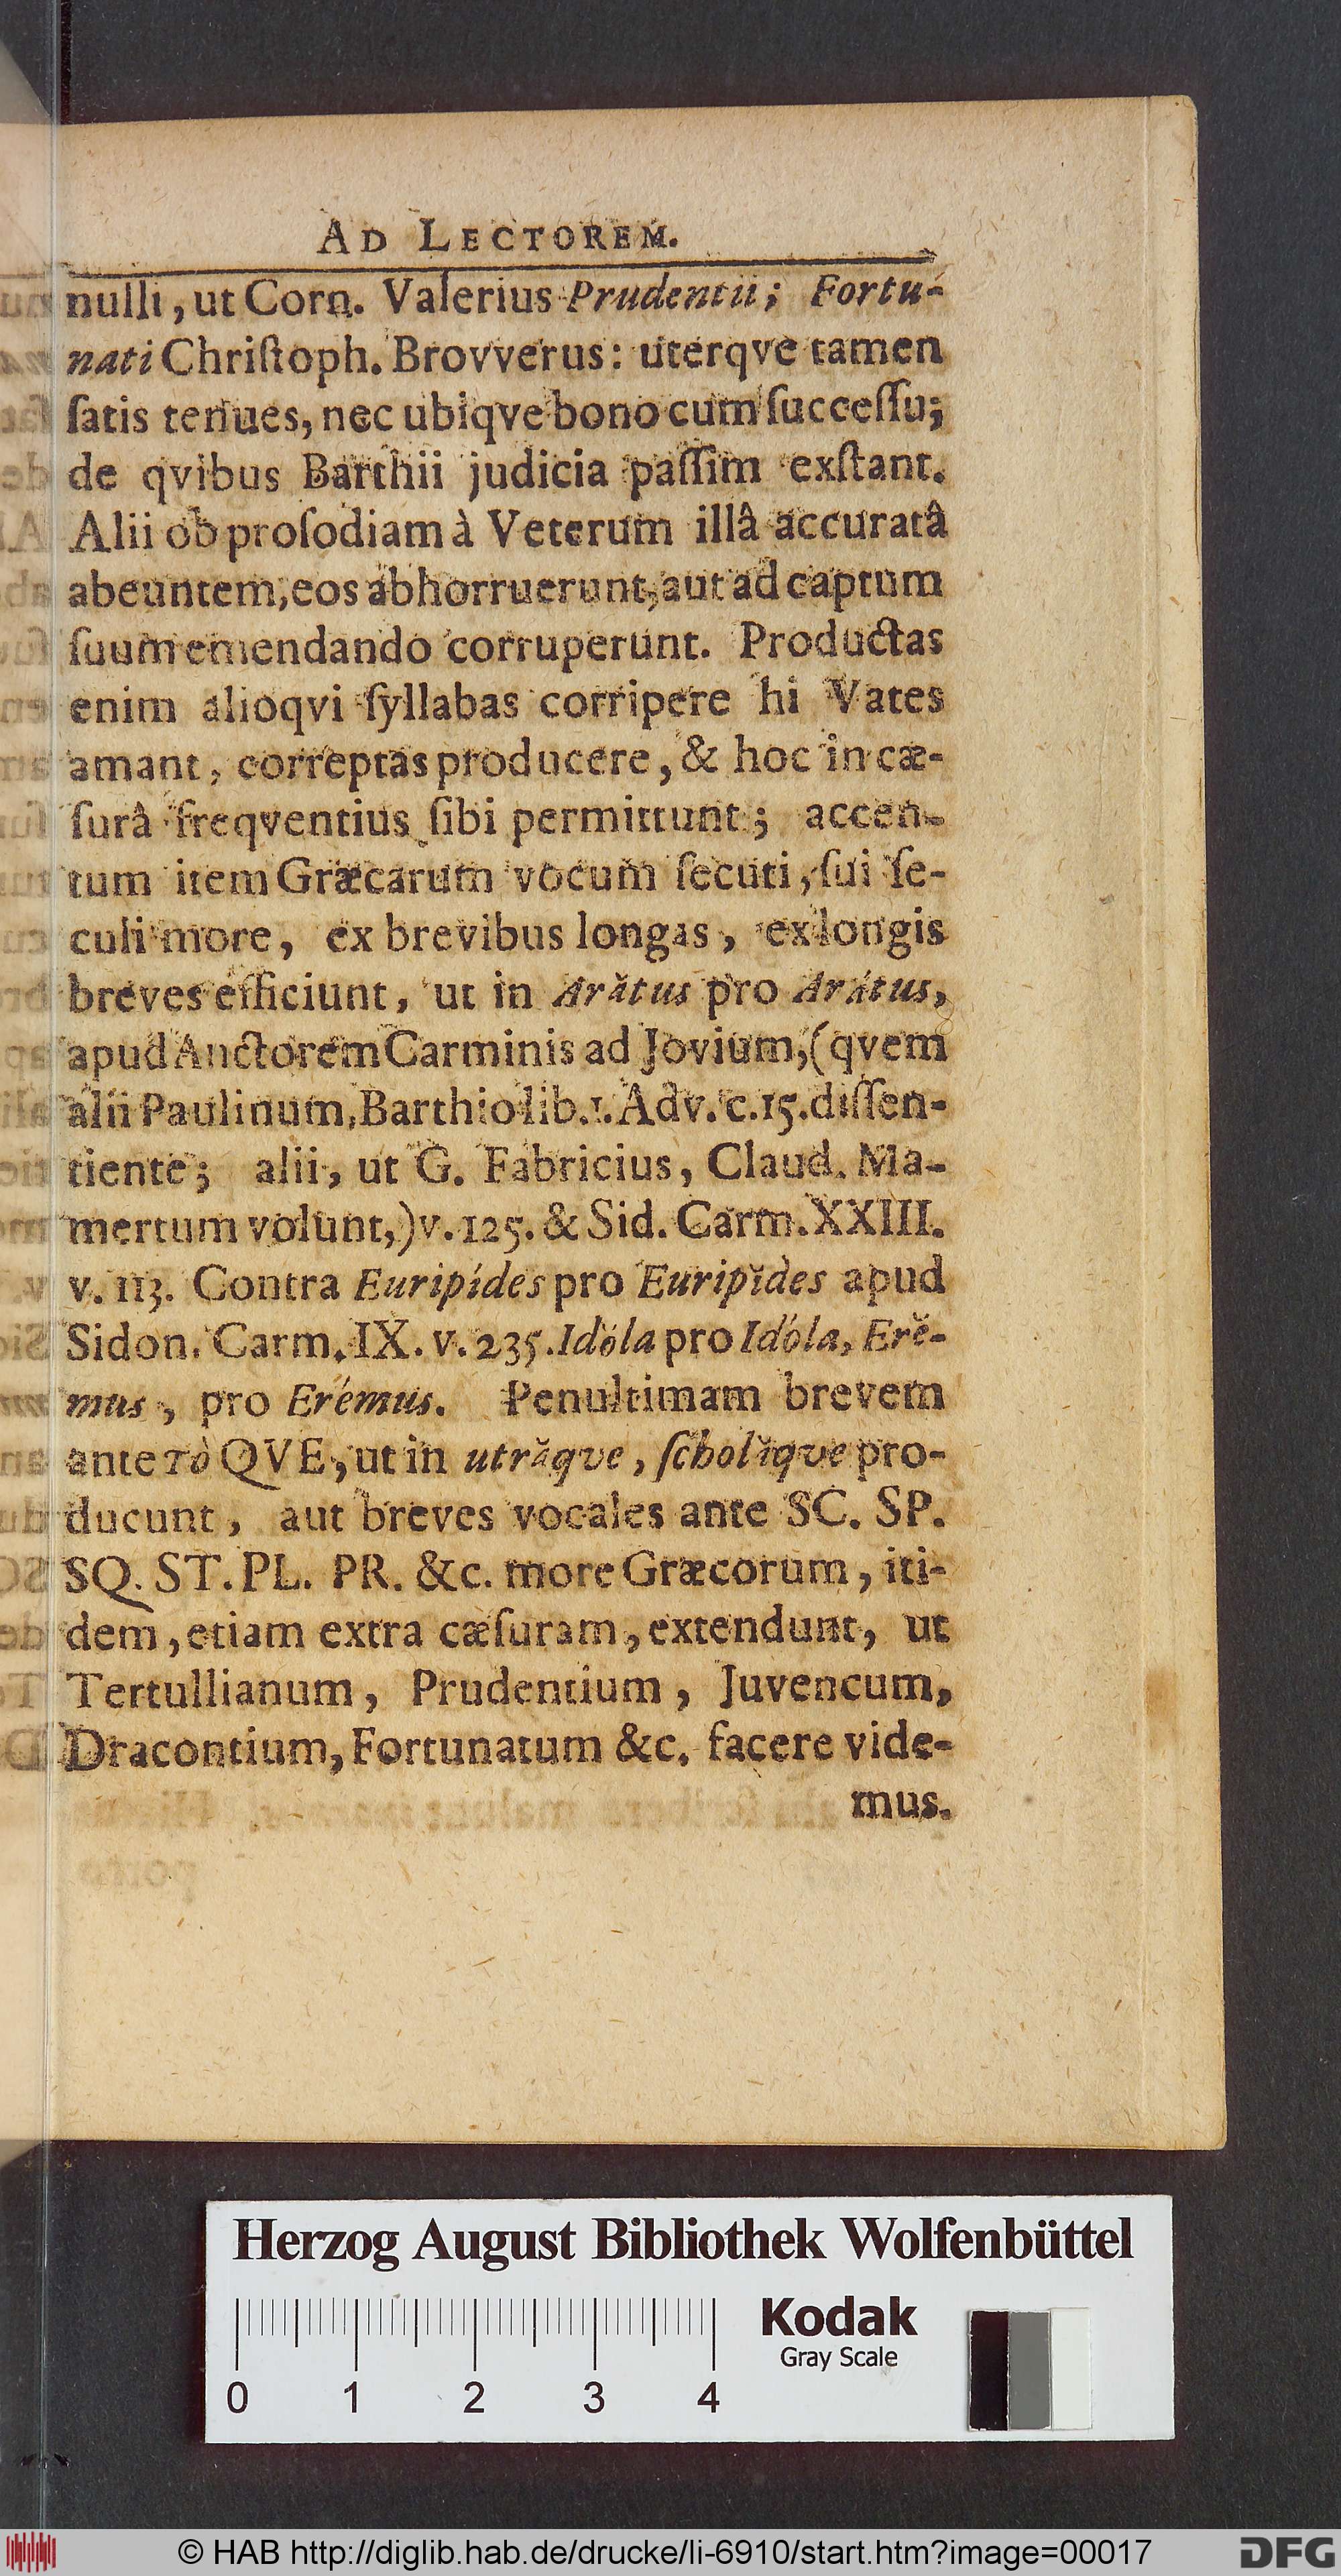 AD LECTOREM.
nulli, ut Corn. Valerius Prudentii; Fortu-
nati Chriſtoph. Brovverus: uterqve tamen
ſatis tenues, nec ubiqve bono cum ſucceſſu;
de qvibus Barthii judicia paſſim exſtant.
Alii ob proſodiam à Veterum illâ accuratâ
abeuntem, eos abhorruerunt, aut ad captum
ſuum emendando corruperunt. Productas
enim alioqvi ſyllabas corripere hi Vates
amant, correptas producere, & hoc in cæ-
ſurâ freqventius ſibi permittunt; accen-
tum item Græcarum vocum ſecuti, ſui ſe-
culi more, ex brevibus longas, ex longis
breves efficiunt, ut in Arătus pro Arátus,
apud Auctorem Carminis ad Jovium, (qvem
alii Paulinum, Barthio lib. 1. Adv. c. 15. diſſen-
tiente; alii, ut G. Fabricius, Claud. Ma-
mertum volunt,) v. 125. & Sid. Carm. XXIII.
v. 113. Contra Euripídes pro Euripĭdes apud
Sidon. Carm. IX. v. 235. Idŏla pro Idóla, Erĕ-
mus, pro Erémus. Penultimam brevem
ante τὸ QVE, ut in utrăqve, ſcholăqve pro-
ducunt, aut breves vocales ante SC. SP.
SQ. ST. PL. PR. &c. more Græcorum, iti-
dem, etiam extra cæſuram, extendunt, ut
Tertullianum, Prudentium, Juvencum,
Dracontium, Fortunatum &c. facere vide-
mus.
Herzog August Bibliothek Wolfenbüttel
Kodak
Gray Scale
0 1 2 3 4
© HAB http://diglib.hab.de/drucke/li-6910/start.htm?image=00017
DFG